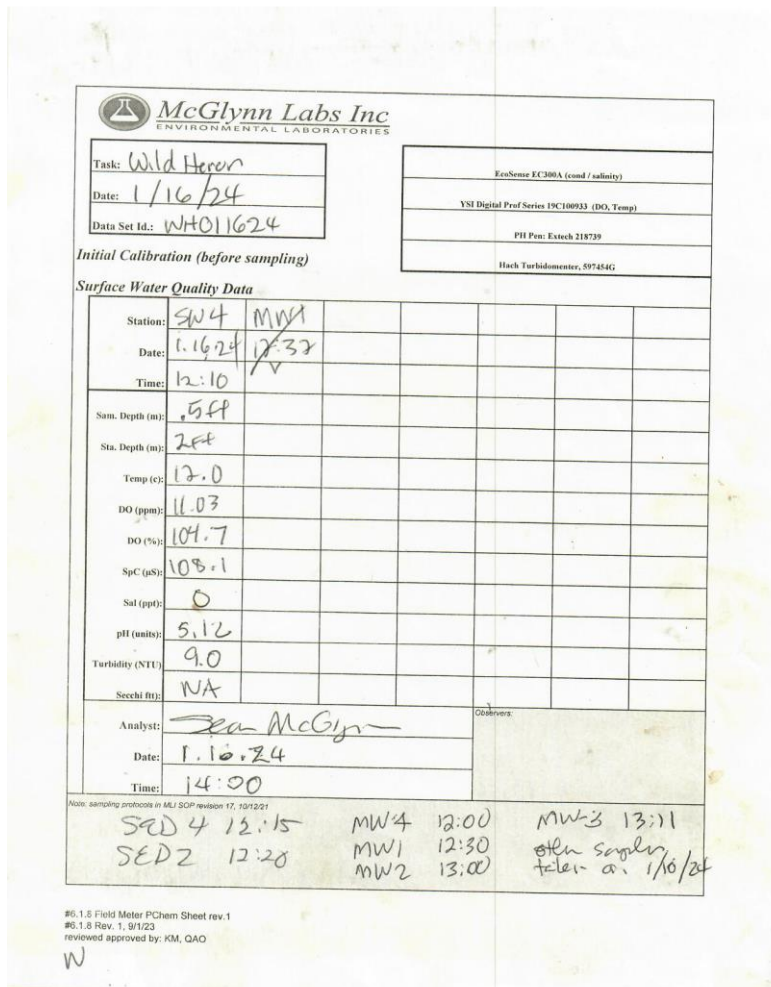 McGlynn Labs Inc
ENVIRONMENTAL LABORATORIES
Task: Wild Heron
Date: 1/16/24
Data Set Id.: WH011624
EcoSense EC300A (cond / salinity)
YSI Digital Prof Series 19C100933 (DO, Temp)
PH Pen: Extech 218739
Hach Turbidomenter, 597454G
Initial Calibration (before sampling)
Surface Water Quality Data
Station: SW4 MW1
Date: 1.16.24 12:32
Time: 12:10
Sam. Depth (m): .5ft
Sta. Depth (m): 2ft
Temp (c): 12.0
DO (ppm): 11.03
DO (%): 104.7
SpC (µS): 108.1
Sal (ppt): 0
pH (units): 5.12
Turbidity (NTU) 9.0
Secchi ft): NA
Analyst: Sean McGlynn
Observers:
Date: 1.16.24
Time: 14:00
Note: sampling protocols in MLI SOP revision 17, 10/12/21
SED 4 12:15 MW4 12:00 MW-3 13:11
SED2 12:20 MW1 12:30 other samples
MW2 13:00 taken on 1/10/24
#6.1.8 Field Meter PChem Sheet rev.1
#6.1.8 Rev. 1, 9/1/23
reviewed approved by: KM, QAO